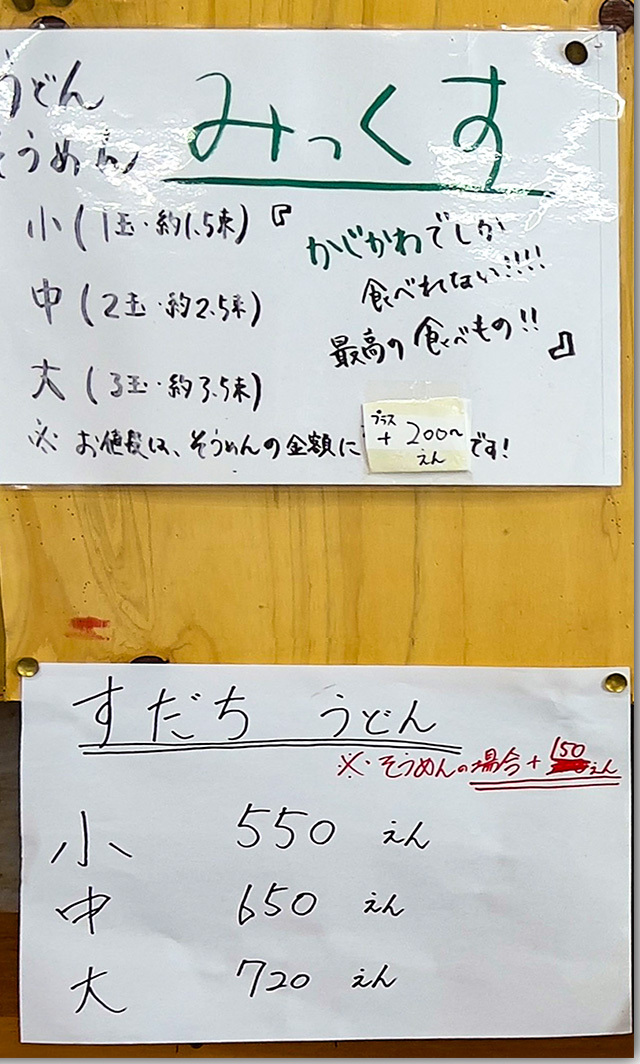 うどん
そうめん
みっくす
小(1玉・約1.5束)
中(2玉・約2.5束)
大(3玉・約3.5束)
『かじかわでしか
食べれない!!!!
最高の食べもの!!』
※お値段は、そうめんの金額に プラス+200〜えん です!
すだち うどん
※.そうめんの場合+150えん
小 550 えん
中 650 えん
大 720 えん